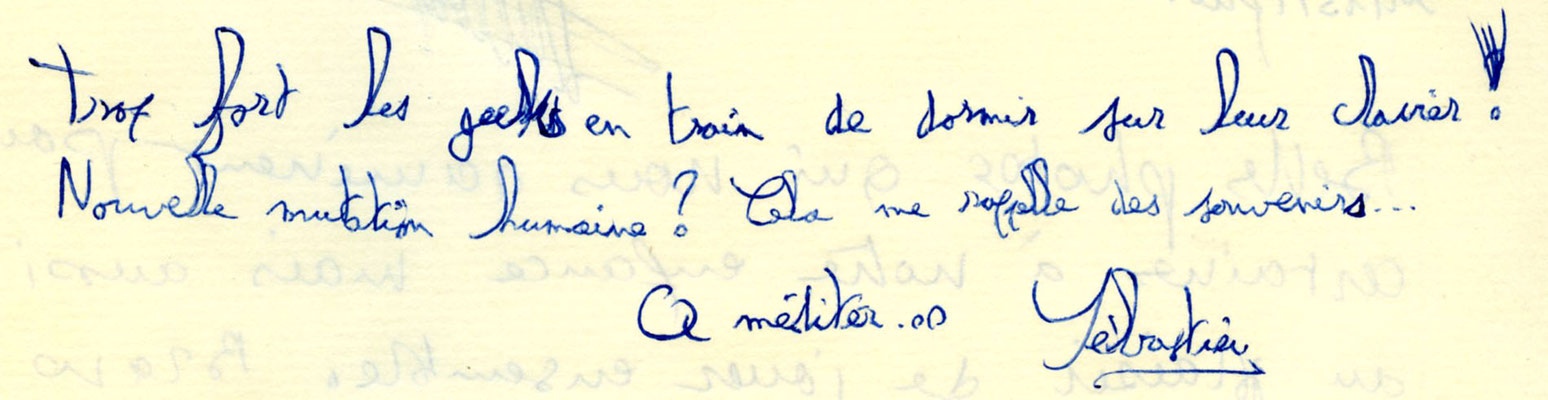 Trop fort les geeks en train de dormir sur leur clavier !
Nouvelle mutation humaine ? Cela me rappelle des souvenirs...
A méditer... Sébastien